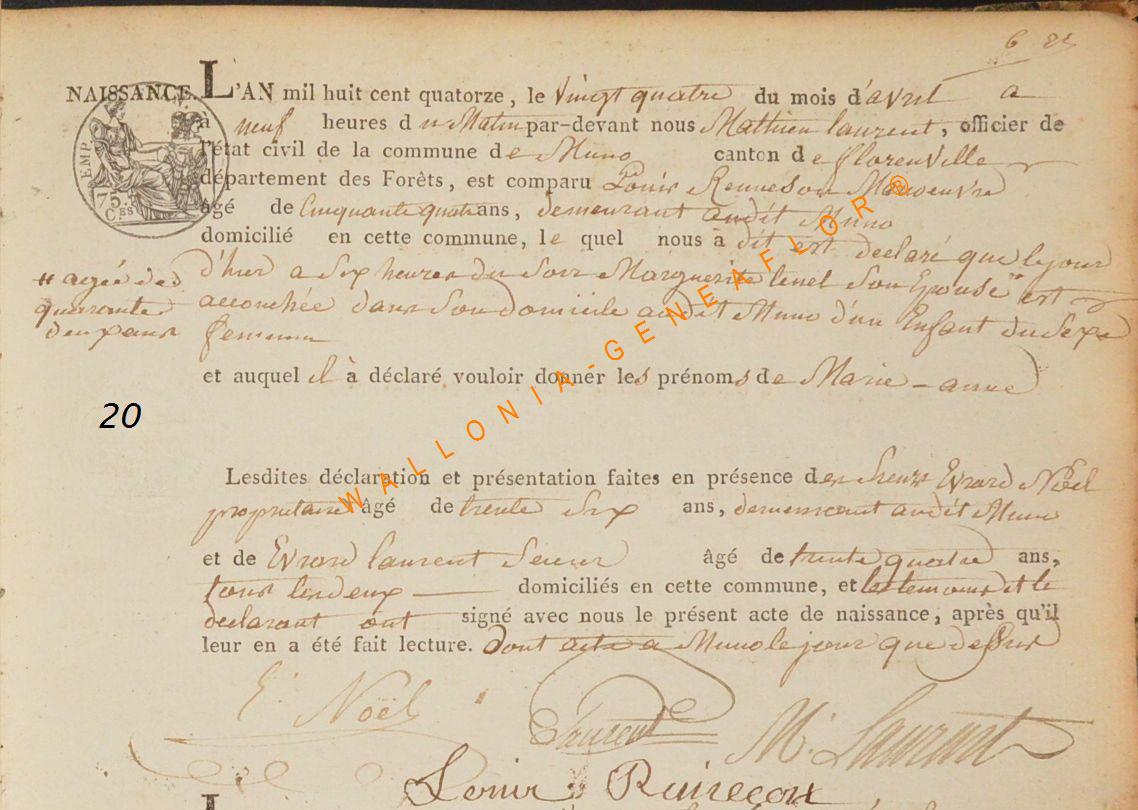 6 25
NAISSANCE. L'AN mil huit cent quatorze, le vingt quatre du mois d'avril a
à neuf heures du Matin par-devant nous Mathieu laurent, officier de
l'état civil de la commune de Muno canton de florenville
département des Forêts, est comparu Louis Renneson Manoeuvre
âgé de Cinquante quatre ans, demeurant audit Muno
domicilié en cette commune, le quel nous à dit est declaré que lejour
d'hier a Six heures du Soir Marguerite lenel Son Epouse est
# agée de
quarante
deux ans
accouchée dans Son domicile audit Muno d'un Enfant du Sexe
femenin
et auquel il à déclaré vouloir donner les prénoms de Marie-anne
20
Lesdites déclaration et présentation faites en présence des Sieurs Evrard Noël
propriétaire âgé de trente Six ans, demeurant audit Muno
et de Evrard laurent âgé de trente quatre ans,
tous lesdeux domiciliés en cette commune, et les temoins et le
declarant ont signé avec nous le présent acte de naissance, après qu'il
leur en a été fait lecture. Dont acte a Muno le jour que dessus
E. Noël
Laurent
M. Laurent
Louis Raineçon
EMP.
75.
C.ES
WALLONIA-GENEAFLOR®
L